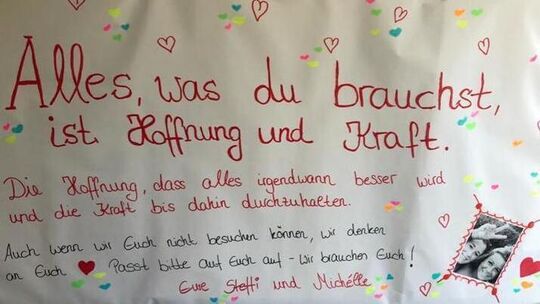 Alles, was du brauchst,
ist Hoffnung und Kraft.
Die Hoffnung, dass alles irgendwann besser wird
und die Kraft bis dahin durchzuhalten.
Auch wenn wir Euch nicht besuchen können, wir denken
an Euch ♥ Passt bitte auf Euch auf - wir brauchen Euch!
Eure Steffi und Michélle